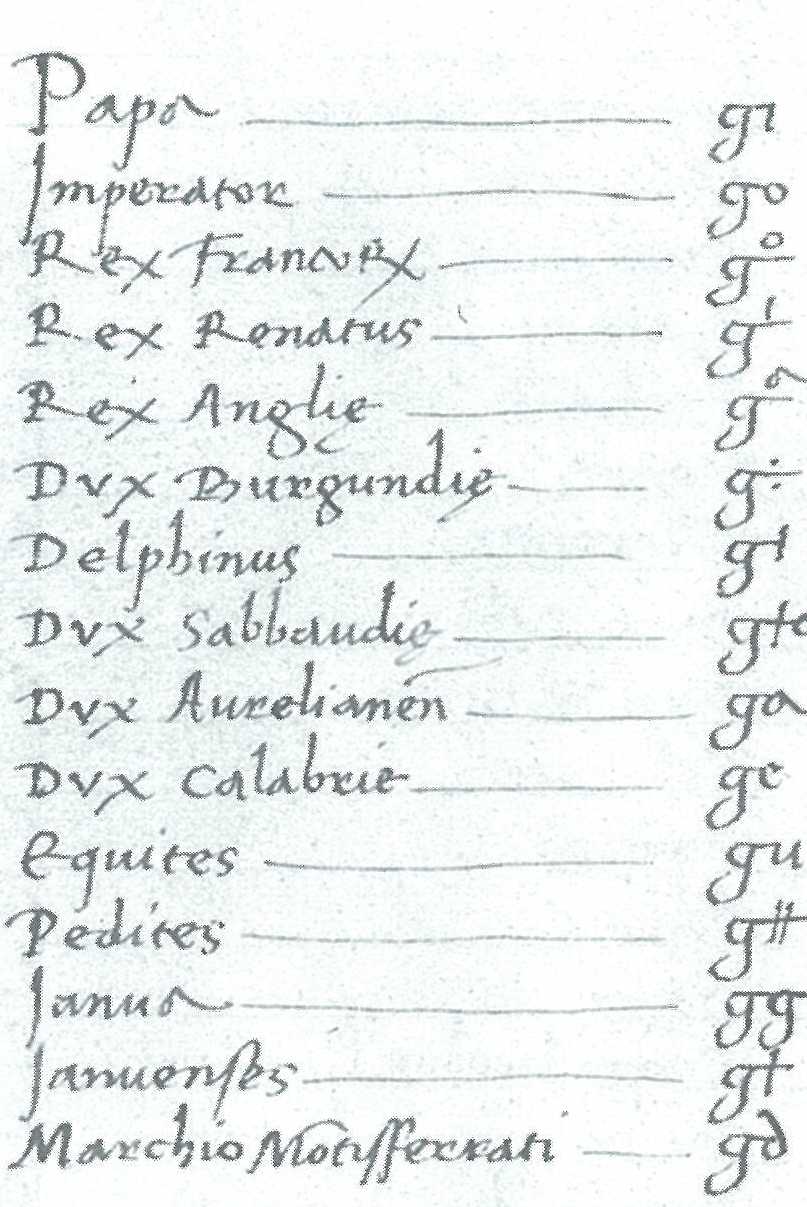 Papa g1
Imperator go
Rex Francorx g°
Rex Renatus g
Rex Anglie g
Dvx Burgundie g÷
Delphinus g
Dvx Sabbaudie g
Dvx Aurelianen̄ ga
Dvx Calabrie ge
Equites gu
Pedites g
Janua gg
Januenses g†
Marchio Mōtisferrati gd